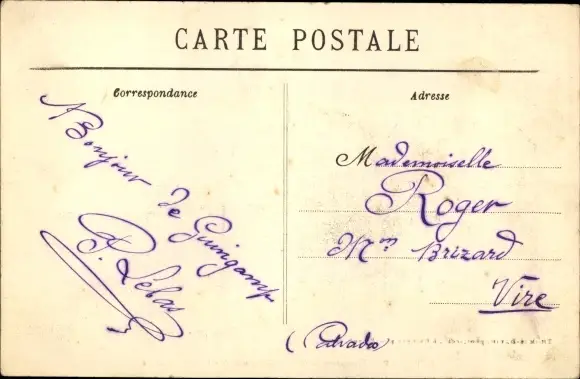 CARTE POSTALE
Correspondance
Bonjour de Guingamp
P. Lebas
Adresse
Mademoiselle
Roger
Mon Brizard
Vire
(Calvados